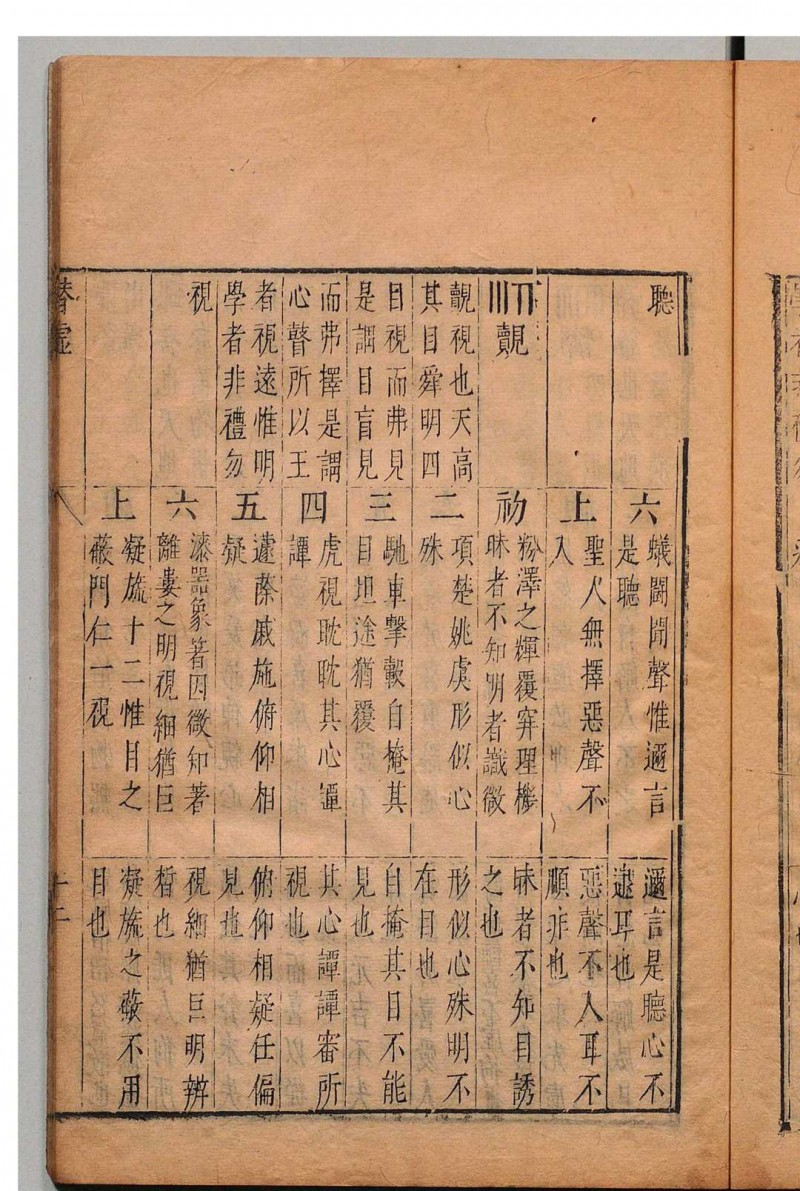 聽
覿
覿視也天高
其目舜明四
目視而弗見
是謂目盲見
而弗擇是謂
心瞽所以王
者視遠惟明
學者非禮勿
視
六
蟻鬪聞聲惟邇言
是聽
上
聖人無擇惡聲不
入
初
粉澤之輝覆穽理機
昧者不知明者識微
二
項楚姚虞形似心
殊
三
馳車擊轂自掩其
目坦途猶覆
四
虎視眈眈其心譚
譚
五
蘧蒢戚施俯仰相
疑
六
漆器象箸因微知著
離婁之明視細猶巨
上
凝旒十二惟目之
蔽門仁一視
邇言是聽心不
逮耳也
惡聲不入耳不
順非也
昧者不知目誘
之也
形似心殊明不
在目也
自掩其目不能
見也
其心譚譚審所
視也
俯仰相疑任偏
見也
視細猶巨明辨
晳也
凝旒之蔽不用
目也
潛虛